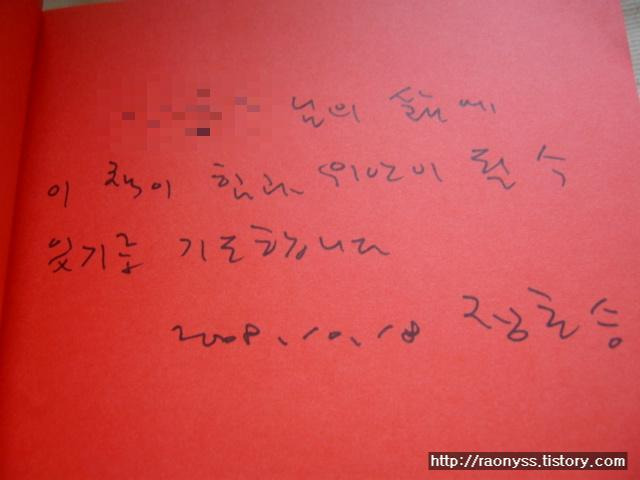 님의 삶에
이 책이 힘과 위안이 될 수
있기를 기도합니다
2008. 10. 18 정호승
http://raonyss.tistory.com